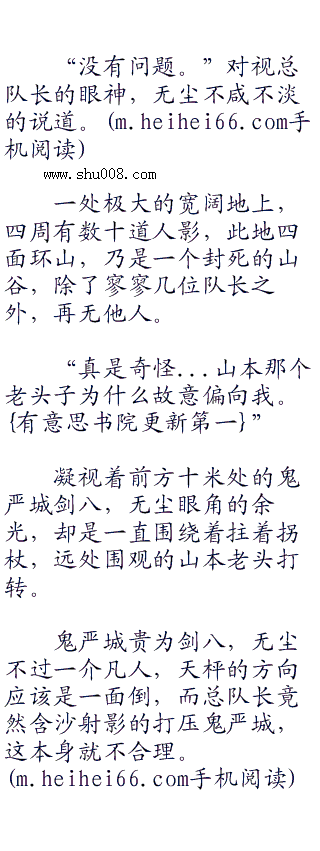 “没有问题。”对视总
队长的眼神，无尘不咸不淡
的说道。(m.heihei66.com手
机阅读)
www.shu008.com
一处极大的宽阔地上，
四周有数十道人影，此地四
面环山，乃是一个封死的山
谷，除了寥寥几位队长之
外，再无他人。
“真是奇怪...山本那个
老头子为什么故意偏向我。
{有意思书院更新第一}”
凝视着前方十米处的鬼
严城剑八，无尘眼角的余
光，却是一直围绕着拄着拐
杖，远处围观的山本老头打
转。
鬼严城贵为剑八，无尘
不过一个凡人，天枰的方向
应该是一面倒，而总队长竟
然含沙射影的打压鬼严城，
这本身就不合理。
(m.heihei66.com手机阅读)